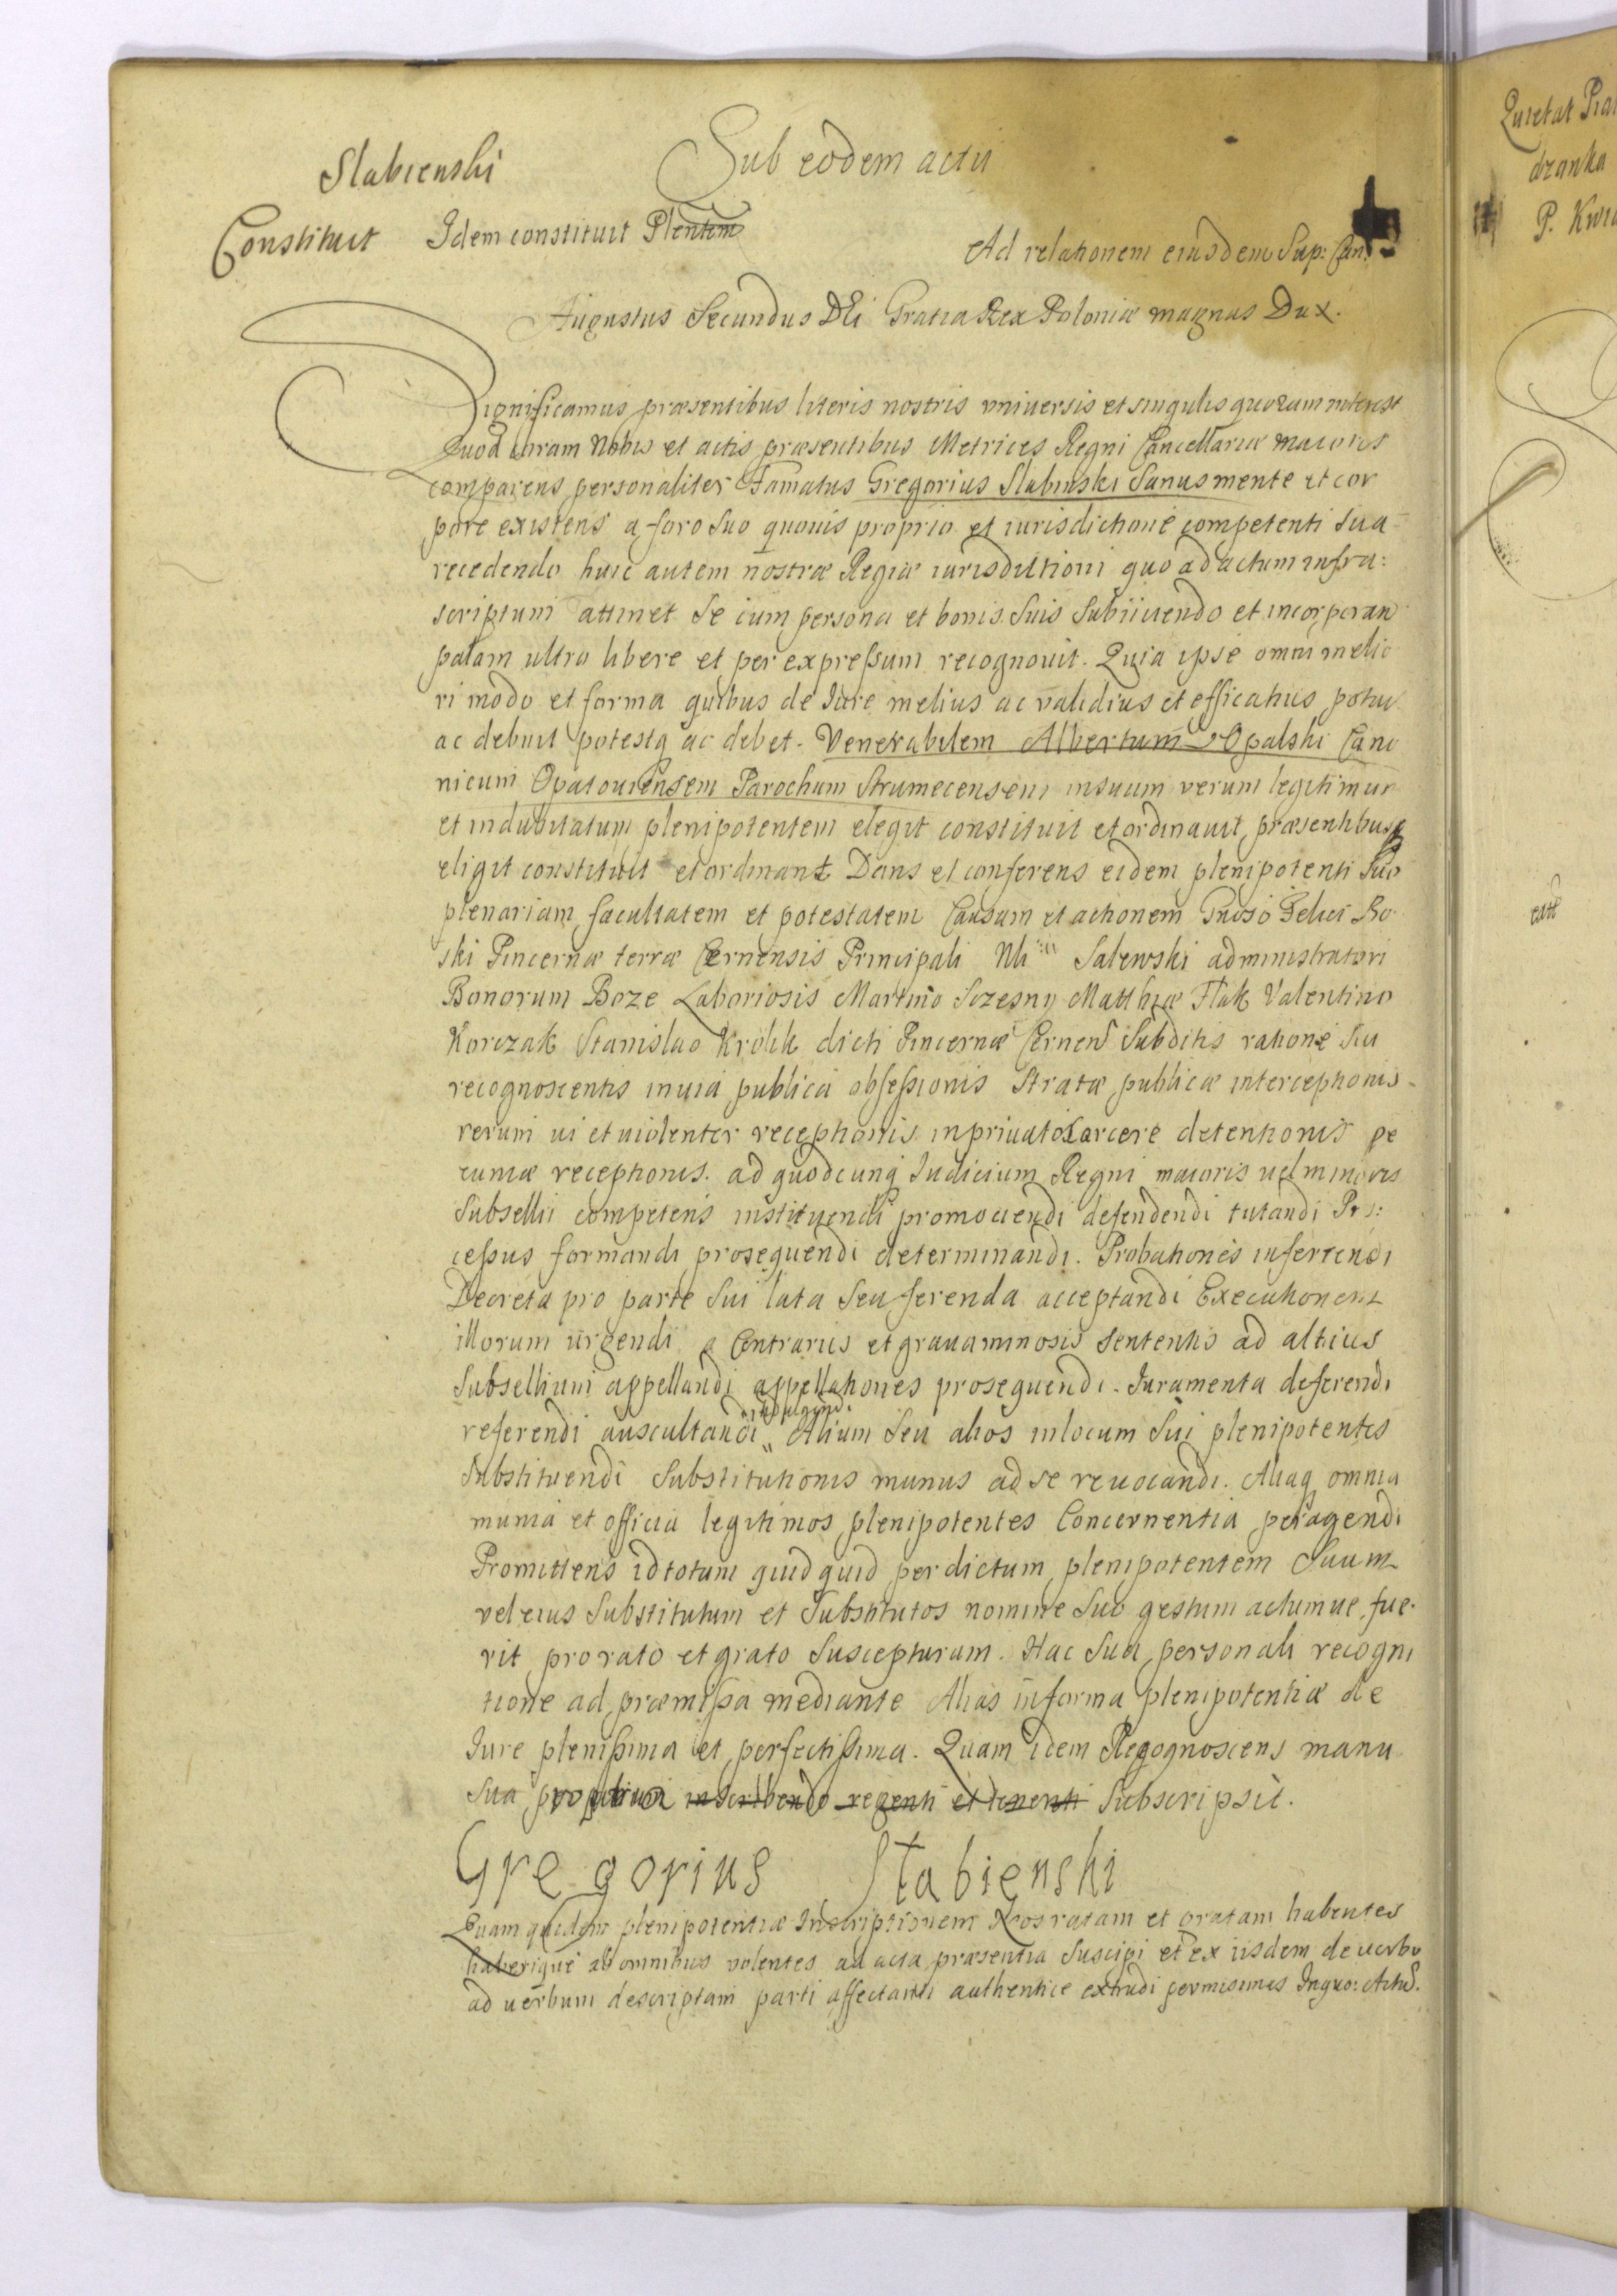 Slabienski
Constituit
Sub eodem actu
Idem constituit Plentem
Ad relationem eiusdem Sup: Can:
Augustus Secundus DEi Gratia Rex Poloniæ magnus Dux.
Significamus præsentibus literis nostris vniuersis et singulis quorum interest
Quod coram Nobis et actis præsentibus Metrices Regni Cancellariæ maioris
comparens personaliter Famatus Gregorius Slabinski Sanus mente et cor
pore existens a foro suo quouis proprio et iurisdictione competenti sua
recedendo huic autem nostræ Regiæ iurisdictioni quo ad actum infra:
scriptum attinet se cum persona et bonis suis subiiciendo et incorporan
palam ultro libere et per expressum recognouit. Quia ipse omni melio
ri modo et forma quibus de Iure melius ac validius et efficatius potui
ac debuit potestq ac debet. Venerabilem Albertum Opalski Cano
nicum Opatouiensem Parochum Strumecensem in suum verum legitimum
et indubitatum plenipotentem elegit constituit et ordinauit præsentibusq
eligit constituit et ordinant Dans et conferens eidem plenipotenti suo
plenariam facultatem et potestatem Causam et actionem Gnoso Felici Ro
ski Pincernæ terræ Cernensis Principali Nli Salewski administratori
Bonorum Boze Laboriosis Martino Sczesny Matthiæ Flak Valentino
Korczak Stanislao Krolik dicti Pincernæ Cernens Subditis ratione sui
recognoscentis in uia publica obsessionis stratæ publicæ interceptionis
rerum ui et uiolenter receptionis in priuato Carcere detentionis pe
cuniæ receptionis. ad quodcunq Iudicium Regni maioris uel minoris
Subsellii competens instituendi promouendi defendendi tutandi Pro:
cessus formandi prosequendi determinandi. Probationes inferendi
Decreta pro parte sui lata seu ferenda acceptandi Executionem
illorum urgendi a Contrariis et grauaminosis sententiis ad altius
Subsellium appellandi appellationes prosequendi. Iuramenta deferendi
referendi auscultandi indulgendi Alium seu alios in locum sui plenipotentes
substituendi Substitutionis munus ad se reuocandi. Aliaq omnia
munia et officia legitimos plenipotentes Concernentia peragendi
Promittens id totum quidquid per dictum plenipotentem Suum
vel eius Substitutum et Substitutos nomine suo gestum actumue fue
rit pro rato et grato suscepturum. Hac sua personali recogni
tione ad præmissa mediante Alias in forma plenipotentiæ de
Iure plenissima et perfectissima. Quam idem Recognoscens manu
sua propria inscribendo regenti et tenenti subscripsit.
Gregorius Slabienski
Quam quidem plenipotentiæ Inscriptionem Nos ratam et gratam habentes
haberique ab omnibus volentes ad acta præsentia suscipi et ex iisdem de uerbo
ad uerbum descriptam parti affectanti authentice extradi permisimus Inquo: Actu.
Quietat
dzanka
P.